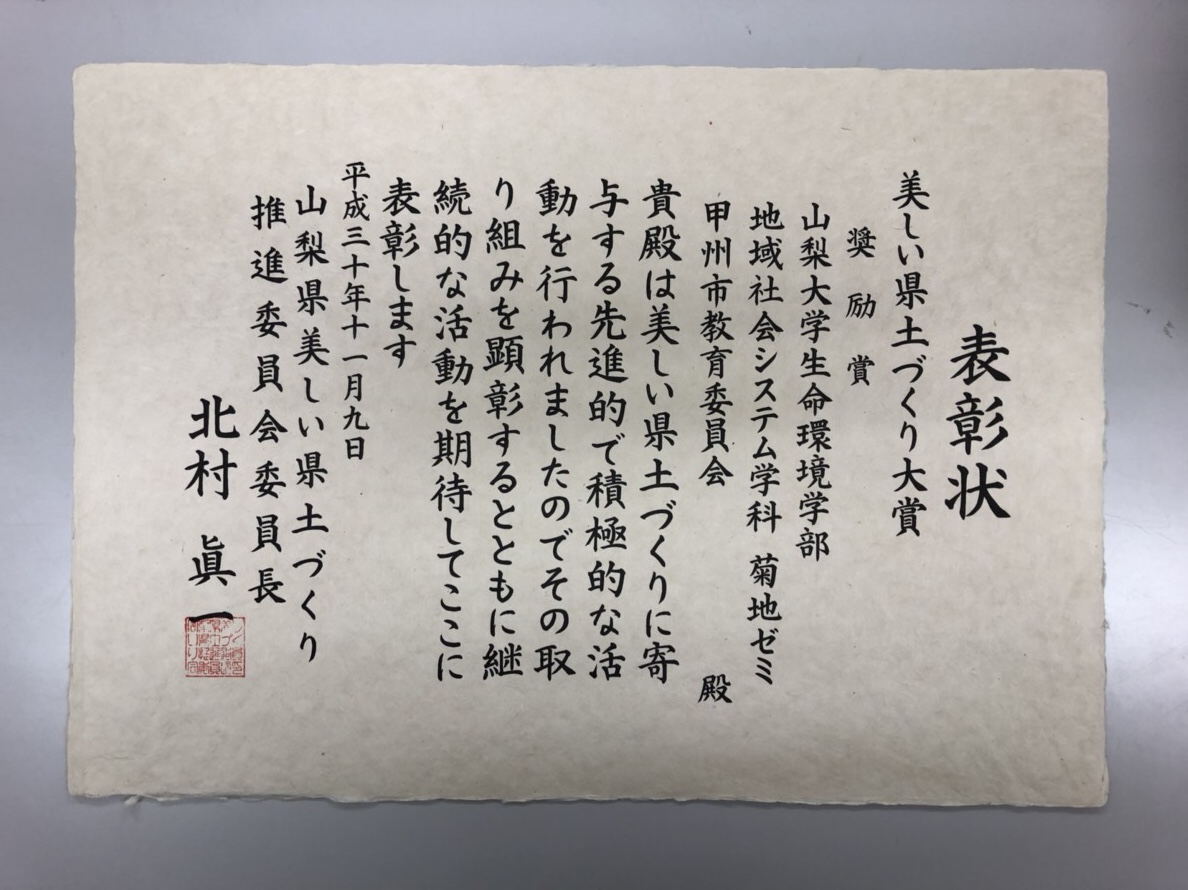 表彰状
美しい県土づくり大賞
奨励賞
山梨大学生命環境学部
地域社会システム学科 菊地ゼミ
甲州市教育委員会 殿
貴殿は美しい県土づくりに寄
与する先進的で積極的な活
動を行われましたのでその取
り組みを顕彰するとともに継
続的な活動を期待してここに
表彰します
平成三十年十一月九日
山梨県美しい県土づくり
推進委員会委員長
北村 眞一